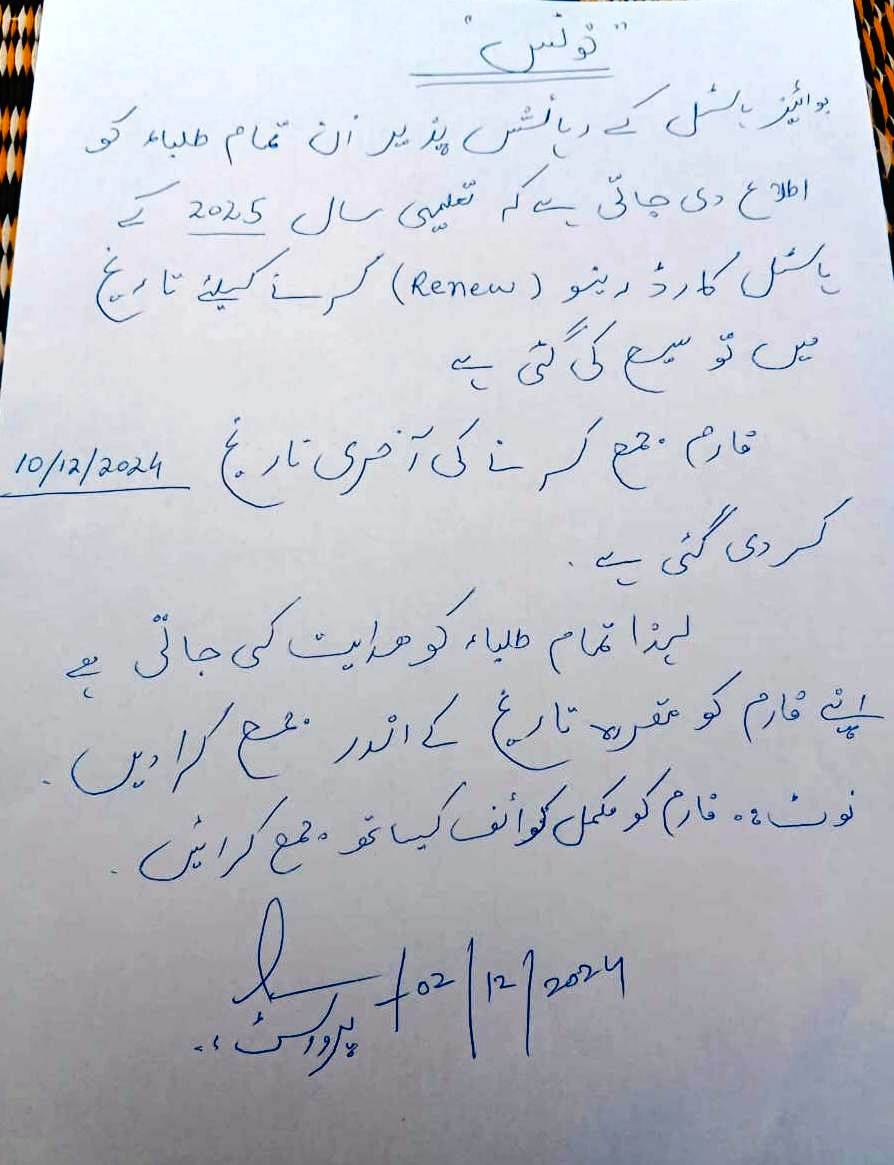 "نوٹس"
بوائیز ہاسٹل کے رہائشس پذیر ان تمام طلباء کو
اطلاع دی جاتی ہے کہ تعلیمی سال 2025 کے
ہاسٹل کارڈ رینو (Renew) کرنے کیلئے تاریخ
میں توسیع کی گئی ہے
فارم جمع کرنے کی آخری تاریخ 10/12/2024
کردی گئی ہے.
لہذا تمام طلباء کو ھدایت کی جاتی ہے
اپنے فارم کو مقررہ تاریخ کے اندر جمع کرادیں.
نوٹ:. فارم کو مکمل کوائف کیساتھ جمع کرائیں.
02/12/2024
پرووسٹ